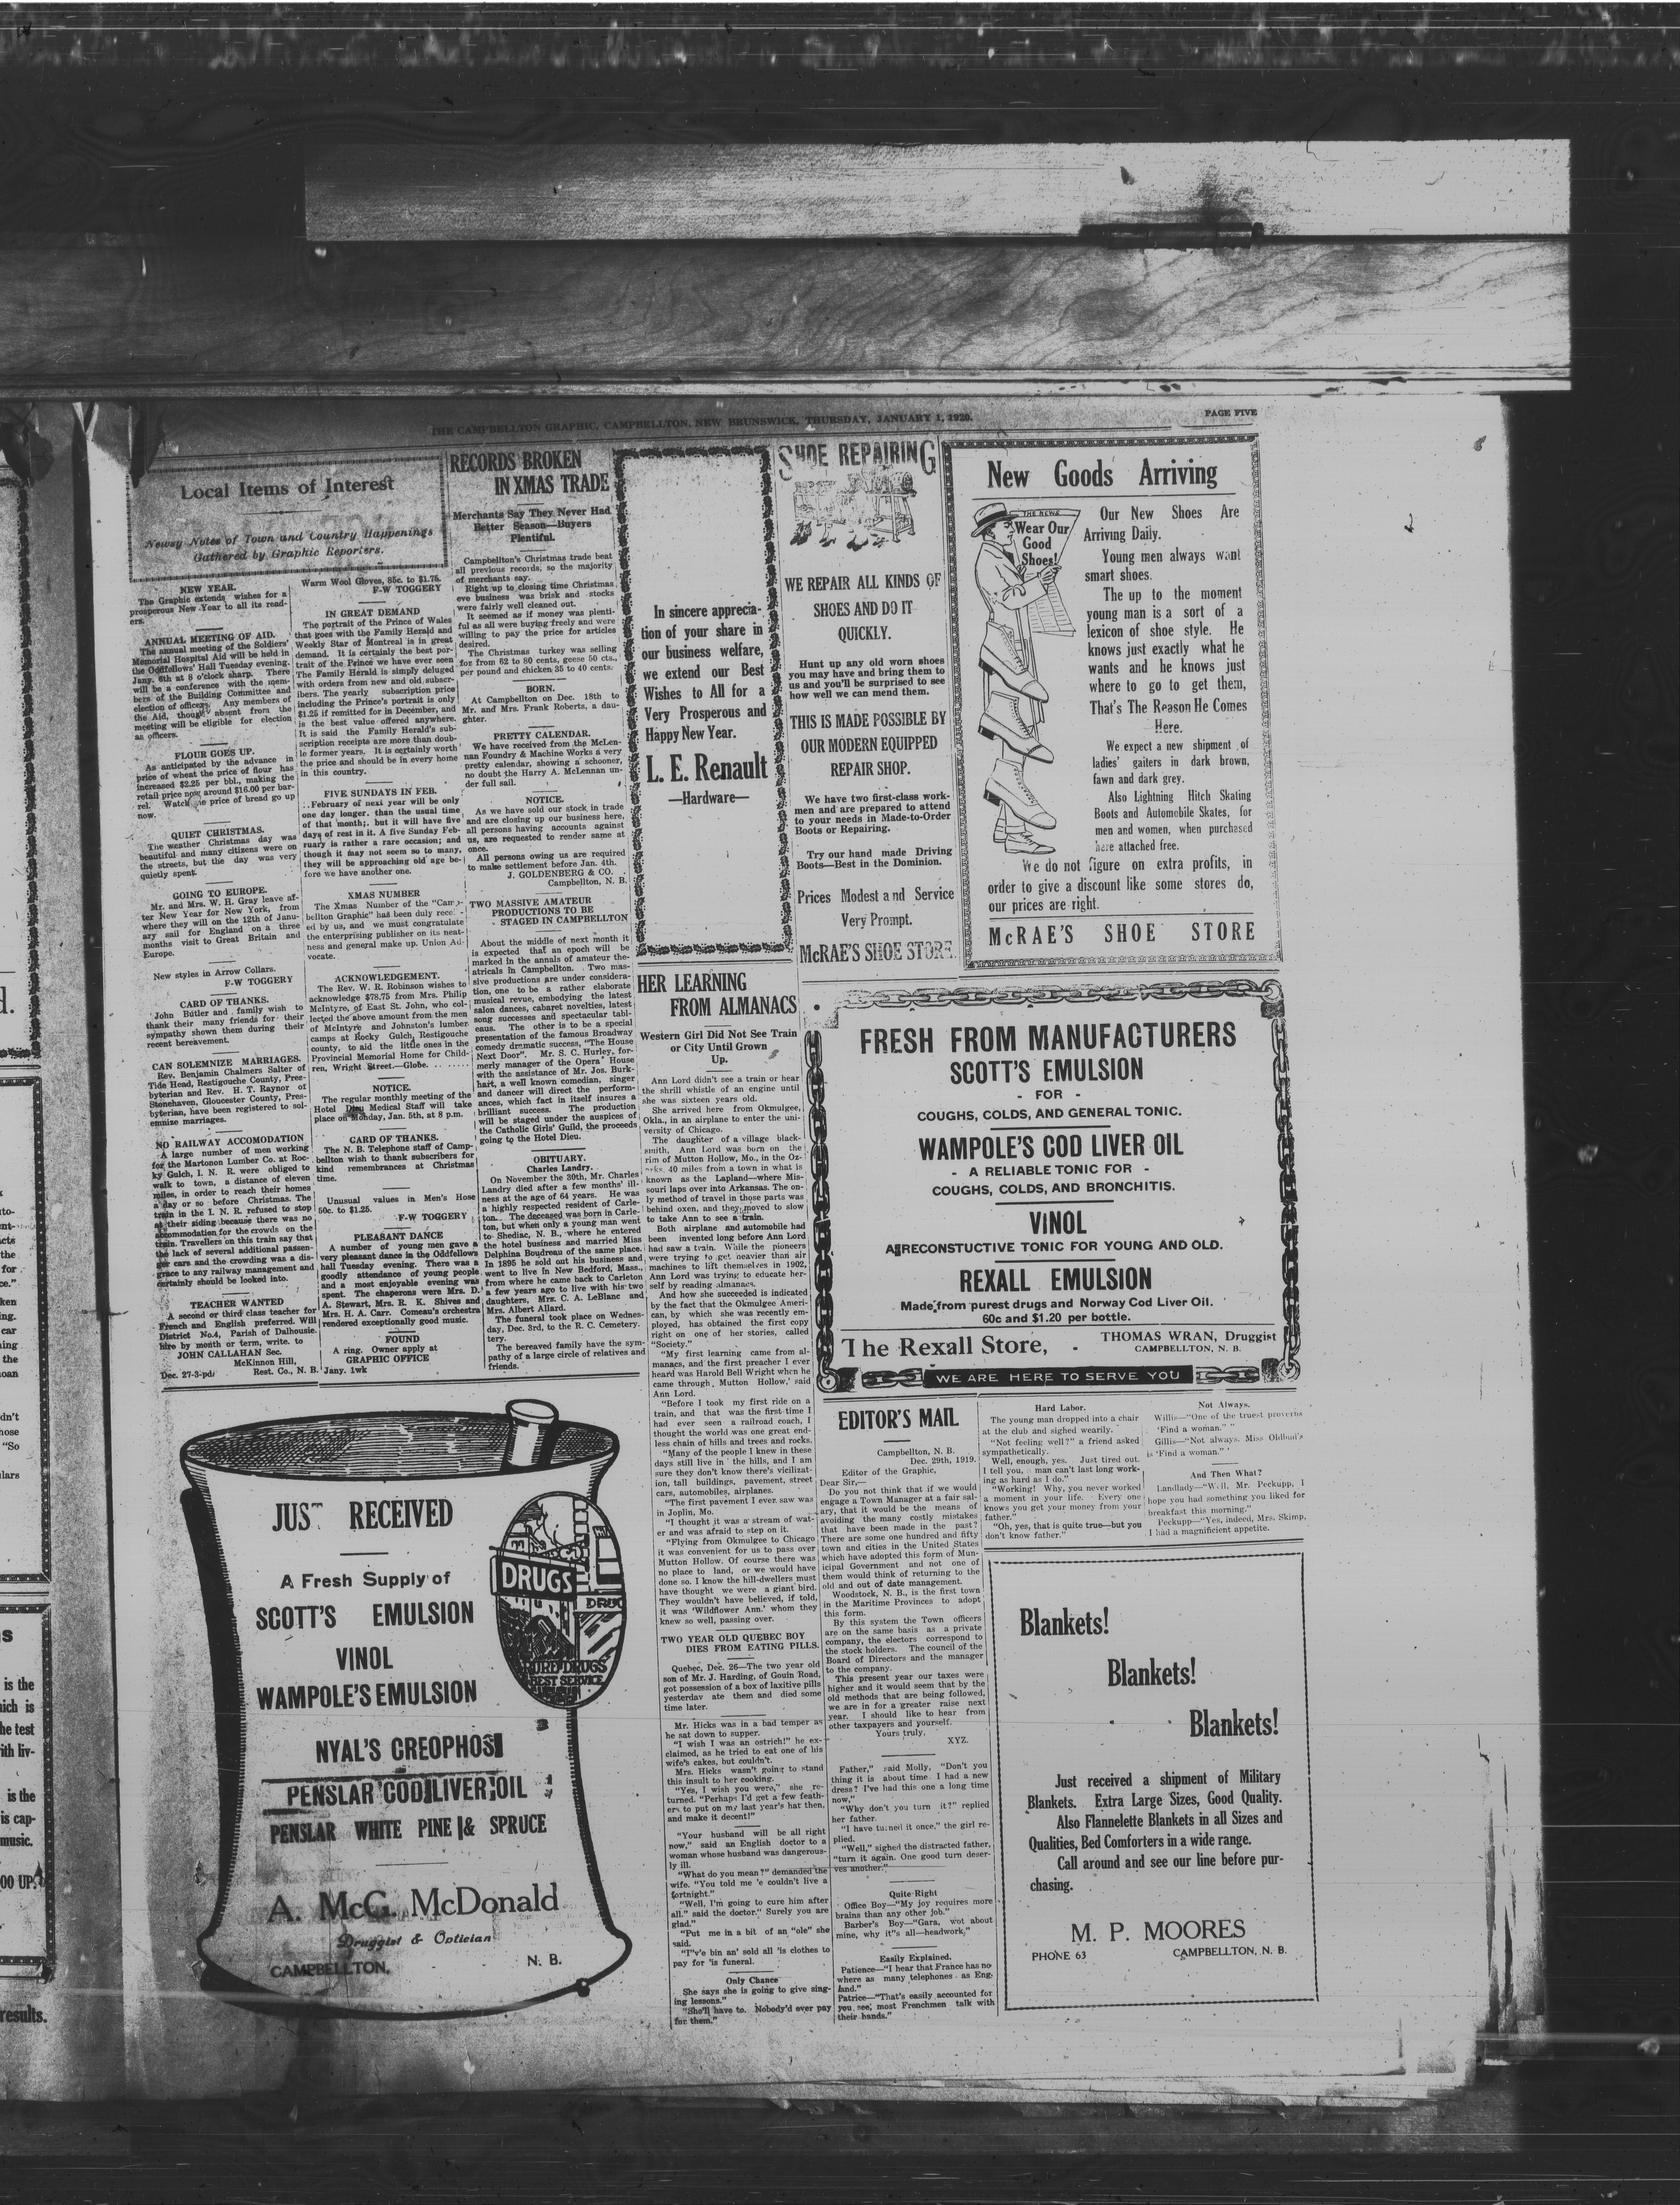 THE CAMPBELLTON GRAPHIC, CAMPBELLTON, NEW BRUNSWICK, THURSDAY, JANUARY 1, 1920.
PAGE FIVE
Local Items of Interest
Newsy Notes of Town and Country Happenings
Gathered by Graphic Reporters.
NEW YEAR.
The Graphic extends wishes for a
prosperous New Year to all its read-
ers.
ANNUAL MEETING OF AID.
The annual meeting of the Soldiers'
Memorial Hospital Aid will be held in
the Oddfellows' Hall Tuesday evening.
Jany. 6th at 8 o'clock sharp. There
will be a conference with the mem-
bers of the Building Committee and
election of officers. Any members of
the Aid, though absent from the
meeting will be eligible for election
as officers.
FLOUR GOES UP.
As anticipated by the advance in
price of wheat the price of flour has
increased $2.25 per bbl., making the
retail price now around $16.00 per bar-
rel. Watch the price of bread go up
now.
QUIET CHRISTMAS.
The weather Christmas day was
beautiful and many citizens were on
the streets, but the day was very
quietly spent.
GOING TO EUROPE.
Mr. and Mrs. W. H. Gray leave af-
ter New Year for New York, from
where they will on the 12th of Janu-
ary sail for England on a three
months visit to Great Britain and
Europe.
New styles in Arrow Collars.
F-W TOGGERY
CARD OF THANKS.
John Butler and family wish to
thank their many friends for their
sympathy shown them during their
recent bereavement.
CAN SOLEMNIZE MARRIAGES.
Rev. Benjamin Chalmers Salter of
Tide Head, Restigouche County, Pres-
byterian and Rev. H. T. Raynor of
Stonehaven, Gloucester County, Pres-
byterian, have been registered to sol-
emnize marriages.
NO RAILWAY ACCOMODATION
A large number of men working
for the Martonon Lumber Co. at Roc-
ky Gulch, I. N. R. were obliged to
walk to town, a distance of eleven
miles, in order to reach their homes
a day or so before Christmas. The
train in the I. N. R. refused to stop
at their siding because there was no
accommodation for the crowds on the
train. Travellers on this train say that
the lack of several additional passen-
ger cars and the crowding was a dis-
grace to any railway management and
certainly should be looked into.
TEACHER WANTED
A second or third class teacher for
French and English preferred. Will
District No.4, Parish of Dalhousie.
hire by month or term, write. to
JOHN CALLAHAN Sec.
McKinnon Hill,
Rest. Co., N. B.
Dec. 27-3-pd
Warm Wool Gloves, 85c. to $1.75.
F-W TOGGERY
IN GREAT DEMAND
The portrait of the Prince of Wales
that goes with the Family Herald and
Weekly Star of Montreal is in great
demand. It is certainly the best por-
trait of the Prince we have ever seen
The Family Herald is simply deluged
with orders from new and old subscr-
ibers. The yearly subscription price
including the Prince's portrait is only
$1.25 if remitted for in December, and
is the best value offered anywhere.
It is said the Family Herald's sub-
scription receipts are more than doub-
le former years. It is certainly worth
the price and should be in every home
in this country.
FIVE SUNDAYS IN FEB.
February of next year will be only
one day longer. than the usual time
of that month;. but it will have five
days of rest in it. A five Sunday Feb-
ruary is rather a rare occasion; and
though it may not seem so to many,
they will be approaching old age be-
fore we have another one.
XMAS NUMBER
The Xmas Number of the "Camp-
bellton Graphic" has been duly recei-
ed by us, and we must congratulate
the enterprising publisher on its neat-
ness and general make up. Union Ad-
vocate.
ACKNOWLEDGEMENT.
The Rev. W. R. Robinson wishes to
acknowledge $78.75 from Mrs. Philip
McIntyre, of East St. John, who col-
lected the above amount from the men
of McIntyre and Johnston's lumber
camps at Rocky Gulch, Restigouche
county, to aid the little ones in the
Provincial Memorial Home for Child-
ren, Wright Street.—Globe.
NOTICE.
The regular monthly meeting of the
Hotel Dieu Medical Staff will take
place on Monday, Jan. 5th, at 8 p.m.
CARD OF THANKS.
The N. B. Telephone staff of Camp-
bellton wish to thank subscribers for
kind remembrances at Christmas
time.
Unusual values in Men's Hose
50c. to $1.25.
F-W TOGGERY
PLEASANT DANCE
A number of young men gave a
very pleasant dance in the Oddfellows
hall Tuesday evening. There was a
goodly attendance of young people
and a most enjoyable evening was
spent. The chaperons were Mrs. D.
A. Stewart, Mrs. R. K. Shives and
Mrs. H. A. Carr. Comeau's orchestra
rendered exceptionally good music.
FOUND
A ring. Owner apply at
GRAPHIC OFFICE
Jany. 1wk
RECORDS BROKEN
IN XMAS TRADE
Merchants Say They Never Had
Better Season—Buyers
Plentiful.
Campbellton's Christmas trade beat
all previous records, so the majority
of merchants say.
Right up to closing time Christmas
eve business was brisk and stocks
were fairly well cleaned out.
It seemed as if money was plenti-
ful as all were buying freely and were
willing to pay the price for articles
desired.
The Christmas turkey was selling
for from 62 to 80 cents, geese 50 cts.,
per pound and chicken 35 to 40 cents.
BORN.
At Campbellton on Dec. 18th to
Mr. and Mrs. Frank Roberts, a dau-
ghter.
PRETTY CALENDAR.
We have received from the McLen-
nan Foundry & Machine Works a very
pretty calendar, showing a schooner,
no doubt the Harry A. McLennan un-
der full sail.
NOTICE.
As we have sold our stock in trade
and are closing up our business here,
all persons having accounts against
us, are requested to render same at
once.
All persons owing us are required
to make settlement before Jan. 4th.
J. GOLDENBERG & CO.
Campbellton, N. B.
TWO MASSIVE AMATEUR
PRODUCTIONS TO BE
STAGED IN CAMPBELLTON
About the middle of next month it
is expected that an epoch will be
marked in the annals of amateur the-
atricals in Campbellton. Two mas-
sive productions are under considera-
tion, one to be a rather elaborate
musical revue, embodying the latest
salon dances, cabaret novelties, latest
song successes and spectacular tabl-
eaus. The other is to be a special
presentation of the famous Broadway
comedy dramatic success, "The House
Next Door". Mr. S. C. Hurley, for-
merly manager of the Opera House
with the assistance of Mr. Jos. Burk-
hart, a well known comedian, singer
and dancer will direct the perform-
ances, which fact in itself insures a
brilliant success. The production
will be staged under the auspices of
the Catholic Girls' Guild, the proceeds
going to the Hotel Dieu.
OBITUARY.
Charles Landry.
On November the 30th, Mr. Charles
Landry died after a few months' ill-
ness at the age of 64 years. He was
a highly respected resident of Carle-
ton. The deceased was born in Carle-
ton, but when only a young man went
to Shediac, N. B., where he entered
the hotel business and married Miss
Delphina Boudreau of the same place.
In 1895 he sold out his business and
went to live in New Bedford, Mass.,
from where he came back to Carleton
a few years ago to live with his two
daughters, Mrs. C. A. LeBlanc and
Mrs. Albert Allard.
The funeral took place on Wednes-
day, Dec. 3rd, to the R. C. Cemetery.
The bereaved family have the sym-
pathy of a large circle of relatives and
friends.
In sincere apprecia-
tion of your share in
our business welfare,
we extend our Best
Wishes to All for a
Very Prosperous and
Happy New Year.
L. E. Renault
—Hardware—
SHOE REPAIRING
WE REPAIR ALL KINDS OF
SHOES AND DO IT
QUICKLY.
Hunt up any old worn shoes
you may have and bring them to
us and you'll be surprised to see
how well we can mend them.
THIS IS MADE POSSIBLE BY
OUR MODERN EQUIPPED
REPAIR SHOP.
We have two first-class work-
men and are prepared to attend
to your needs in Made-to-Order
Boots or Repairing.
Try our hand made Driving
Boots—Best in the Dominion.
Prices Modest and Service
Very Prompt.
McRAE'S SHOE STORE.
New Goods Arriving
THE NEWS
Wear Our
Good
Shoes!
Our New Shoes Are
Arriving Daily.
Young men always want
smart shoes.
The up to the moment
young man is a sort of a
lexicon of shoe style. He
knows just exactly what he
wants and he knows just
where to go to get them,
That's The Reason He Comes
Here.
We expect a new shipment of
ladies' gaiters in dark brown,
fawn and dark grey.
Also Lightning Hitch Skating
Boots and Automobile Skates, for
men and women, when purchased
here attached free.
We do not figure on extra profits, in
order to give a discount like some stores do,
our prices are right.
McRAE'S SHOE STORE
HER LEARNING
FROM ALMANACS
Western Girl Did Not See Train
or City Until Grown
Up.
Ann Lord didn't see a train or hear
the shrill whistle of an engine until
she was sixteen years old.
She arrived here from Okmulgee,
Okla., in an airplane to enter the uni-
versity of Chicago.
The daughter of a village black-
smith, Ann Lord was born on the
rim of Mutton Hollow, Mo., in the Oz-
arks. 40 miles from a town in what is
known as the Lapland—where Mis-
souri laps over into Arkansas. The on-
ly method of travel in those parts was
behind oxen, and they moved to slow
to take Ann to see a train.
Both airplane and automobile had
been invented long before Ann Lord
had saw a train. While the pioneers
were trying to get heavier than air
machines to lift themselves in 1902,
Ann Lord was trying to educate her-
self by reading almanacs.
And how she succeeded is indicated
by the fact that the Okmulgee Ameri-
can, by which she was recently em-
ployed, has obtained the first copy
right on one of her stories, called
"Society."
"My first learning came from al-
manacs, and the first preacher I ever
heard was Harold Bell Wright when he
came through Mutton Hollow,' said
Ann Lord.
"Before I took my first ride on a
train, and that was the first time I
had ever seen a railroad coach, I
thought the world was one great end-
less chain of hills and trees and rocks.
"Many of the people I knew in these
days still live in the hills, and I am
sure they don't know there's vicilizat-
ion, tall buildings, pavement, street
cars, automobiles, airplanes.
"The first pavement I ever saw was
in Joplin, Mo.
"I thought it was a stream of wat-
er and was afraid to step on it.
"Flying from Okmulgee to Chicago
it was convenient for us to pass over
Mutton Hollow. Of course there was
no place to land, or we would have
done so. I know the hill-dwellers must
have thought we were a giant bird.
They wouldn't have believed, if told,
it was 'Wildflower Ann.' whom they
knew so well, passing over.
TWO YEAR OLD QUEBEC BOY
DIES FROM EATING PILLS.
Quebec, Dec. 26—The two year old
son of Mr. J. Harding, of Gouin Road,
got possession of a box of laxitive pills
yesterday ate them and died some
time later.
Mr. Hicks was in a bad temper as
he sat down to supper.
"I wish I was an ostrich!" he ex-
claimed, as he tried to eat one of his
wife's cakes, but couldn't.
Mrs. Hicks wasn't going to stand
this insult to her cooking.
"Yes, I wish you were," she re-
turned. "Perhaps I'd get a few feath-
ers to put on my last year's hat then,
and make it decent!"
"Your husband will be all right
now," said an English doctor to a
woman whose husband was dangerous-
ly ill.
"What do you mean?" demanded the
wife. "You told me 'e couldn't live a
fortnight."
"Well, I'm going to cure him after
all." said the doctor." Surely you are
glad."
"Put me in a bit of an "ole" she
said.
"I"v'e bin an' sold all 'is clothes to
pay for 'is funeral.
Only Chance
She says she is going to give sing-
ing lessons."
"She'll have to. Nobody'd ever pay
for them."
FRESH FROM MANUFACTURERS
SCOTT'S EMULSION
- FOR -
COUGHS, COLDS, AND GENERAL TONIC.
WAMPOLE'S COD LIVER OIL
- A RELIABLE TONIC FOR -
COUGHS, COLDS, AND BRONCHITIS.
VINOL
A RECONSTUCTIVE TONIC FOR YOUNG AND OLD.
REXALL EMULSION
Made from purest drugs and Norway Cod Liver Oil.
60c and $1.20 per bottle.
The Rexall Store, -
THOMAS WRAN, Druggist
CAMPBELLTON, N. B.
WE ARE HERE TO SERVE YOU
EDITOR'S MAIL
Campbellton, N. B.
Dec. 29th, 1919.
Editor of the Graphic,
Dear Sir,—
Do you not think that if we would
engage a Town Manager at a fair sal-
ary, that it would be the means of
avoiding the many costly mistakes
that have been made in the past?
There are some one hundred and fifty
town and cities in the United States
which have adopted this form of Mun-
icipal Government and not one of
them would think of returning to the
old and out of date management.
Woodstock, N. B., is the first town
in the Maritime Provinces to adopt
this form.
By this system the Town officers
are on the same basis as a private
company, the electors correspond to
the stock holders. The council of the
Board of Directors and the manager
to the company.
This present year our taxes were
higher and it would seem that by the
old methods that are being followed,
we are in for a greater raise next
year. I should like to hear from
other taxpayers and yourself.
Yours truly,
XYZ.
Father," said Molly, "Don't you
thing it is about time I had a new
dress? I've had this one a long time
now,"
"Why don't you turn it?" replied
her father.
"I have turned it once," the girl re-
plied.
"Well," sighed the distracted father,
"turn it again. One good turn deser-
ves another."
Quite Right
Office Boy—"My joy requires more
brains than any other job."
Barber's Boy—"Gara, wot about
mine, why it"s all—headwork,"
Easily Explained.
Patience—"I hear that France has no-
where as many telephones as Eng-
land."
Patrice—"That's easily accounted for
you see, most Frenchmen talk with
their hands."
Hard Labor.
The young man dropped into a chair
at the club and sighed wearily.
"Not feeling well?" a friend asked
sympathetically.
Well, enough, yes. Just tired out.
I tell you, man can't last long work-
ing as hard as I do."
"Working! Why, you never worked
a moment in your life. Every one
knows you get your money from your
father."
"Oh, yes, that is quite true—but you
don't know father."
Not Always.
Willis—"One of the truest proverbs
'Find a woman.' "
Gillis—"Not always. Miss Oldbud's
is 'Find a woman." '
And Then What?
Landlady—"Well, Mr. Peckupp, I
hope you had something you liked for
breakfast this morning."
Peckupp—"Yes, indeed, Mrs. Skimp,
I had a magnificient appetite.
JUST RECEIVED
A Fresh Supply of
SCOTT'S EMULSION
VINOL
WAMPOLE'S EMULSION
NYAL'S CREOPHOS
PENSLAR COD LIVER OIL
PENSLAR WHITE PINE & SPRUCE
A. McG. McDonald
Druggist & Optician
CAMPBELLTON, N. B.
DRUGS
DRUG
PURE DRUGS
BEST SERVICE
Blankets!
Blankets!
Blankets!
Just received a shipment of Military
Blankets. Extra Large Sizes, Good Quality.
Also Flannelette Blankets in all Sizes and
Qualities, Bed Comforters in a wide range.
Call around and see our line before pur-
chasing.
M. P. MOORES
PHONE 63 CAMPBELLTON, N. B.